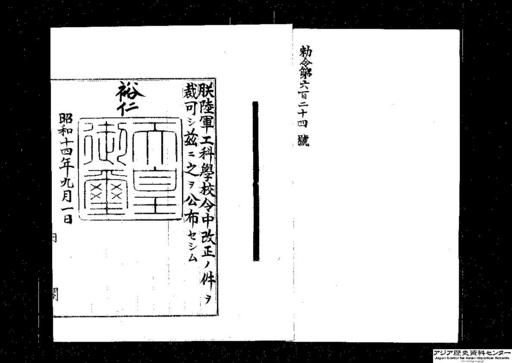 勅令第六百二十四號
朕陸軍工科學校令中改正ノ件ヲ
裁可シ玆ニ之ヲ公布セシム
裕仁
天皇
御璽
昭和十四年九月一日
アジア歴史資料センター
Japan Center for Asian Historical Records